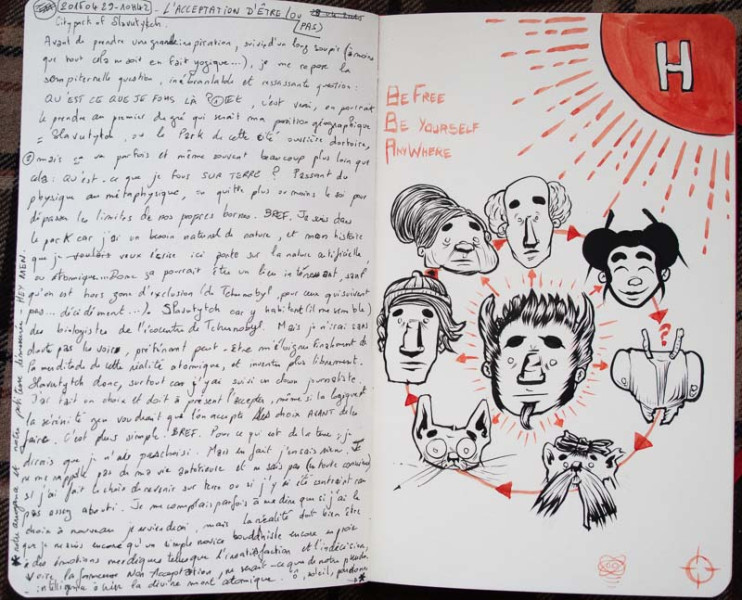 20150429-10h42 - L'ACCEPTATION D'ÊTRE (OU
PAS)
Citypark of Slavutytch.
Avant de prendre une grande inspiration, suivie d'un long soupir (à moins
que tout cela ne soit en fait yogique...), je me repose la
sempiternelle question, inébranlable et ressassante question:
QU'EST CE QUE JE FOUS LÀ ? , c'est vrai, on pourrait
le prendre au premier degré qui serait ma position géographique
= Slavutytch, ou le Park de cette cité ouvrière dortoire,
mais on va parfois et même souvent beaucoup plus loin que
cela: QU'EST-ce que je fous SUR TERRE ? Passant du
physique au métaphysique, on quitte plus ou moins le soi pour
dépasser les limites de nos propres bornes. BREF. Je suis dans
le park car j'ai un besoin naturel de nature, et mon histoire
que je voulais vous écrire ici porte sur la nature artificielle,
ou atomique... Donc ça pourrait être un lieu intéressant, sauf
qu'on est hors zone d'exclusion (de Tchernobyl, pour ceux qui suivent
pas... décidément...). Slavutytch car y habitent (il me semble)
des biologistes de l'écocentre de Tchernobyl. Mais je n'irai sans
doute pas les voir, préférant peut-être m'éloigner finalement de
la véritude de cette réalité atomique, et inventer plus librement.
Slavutytch donc, surtout car j'y ai suivi un choux journaliste.
J'ai fait un choix et doit à présent l'accepter, même si la logique et
la sérénité zen voudrait que l'on accepte les choix AVANT de les
faire. C'est plus simple! BREF. Pour ce qui est de la terre, j
dirais que je n'ai pas choisi. Mais en fait j'en sais rien. Je
ne me rappelle pas de ma vie antérieure et ne sais pas (en toute conscience)
si j'ai fait le choix de revenir sur terre ou si j'y ai été contraint car
pas assez abouti. Je me complais parfois à me dire que si j'ai le
choix à nouveau je reviendrai, mais la réalité doit bien être
que je ne suis encore qu'un simple novice bouddhiste encore en proie
des émotions merdiques telles que l'insatisfaction et l'indécision,
voire la fameuse Non Acceptation,
intelligence à suivre la divine mort atomique. Ô, soleil, pardonne
- HEY MEN.
H
BE FREE
BE YOURSELF
ANYWHERE
?